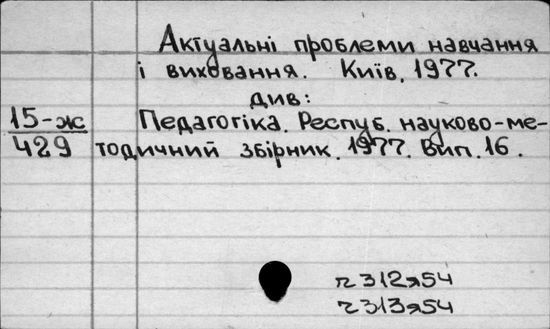 Актуальні проблеми навчання
і виховання. Київ, 1977.
див:
15-ж Педагогіка. Респуб. науково-ме-
429 тодичний збірник. 1977. Вип. 16.
ч312я54
ч313я54